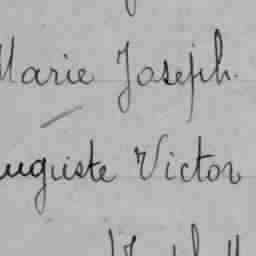 Marie Joseph.
uguste Victor